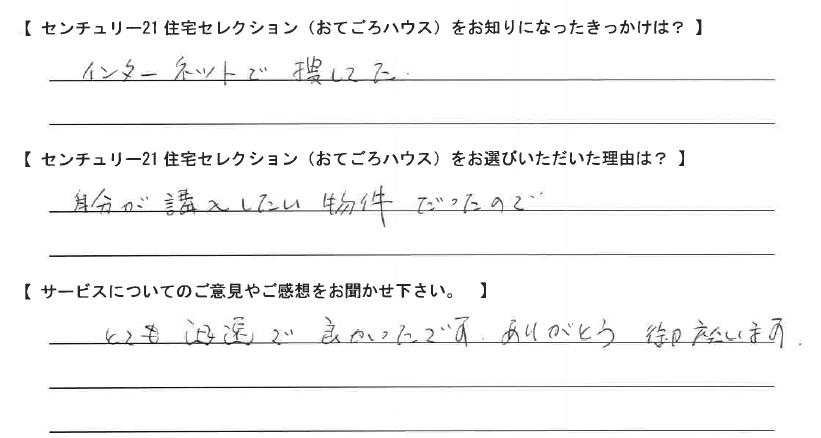 【 センチュリー21 住宅セレクション（おてごろハウス）をお知りになったきっかけは？ 】
インターネットで 捜してた.
【 センチュリー21 住宅セレクション（おてごろハウス）をお選びいただいた理由は？ 】
自分が 講入したい 物件 だったので
【 サービスについてのご意見やご感想をお聞かせ下さい。 】
とても 迅速で 良かったです. ありがとう 御座います.